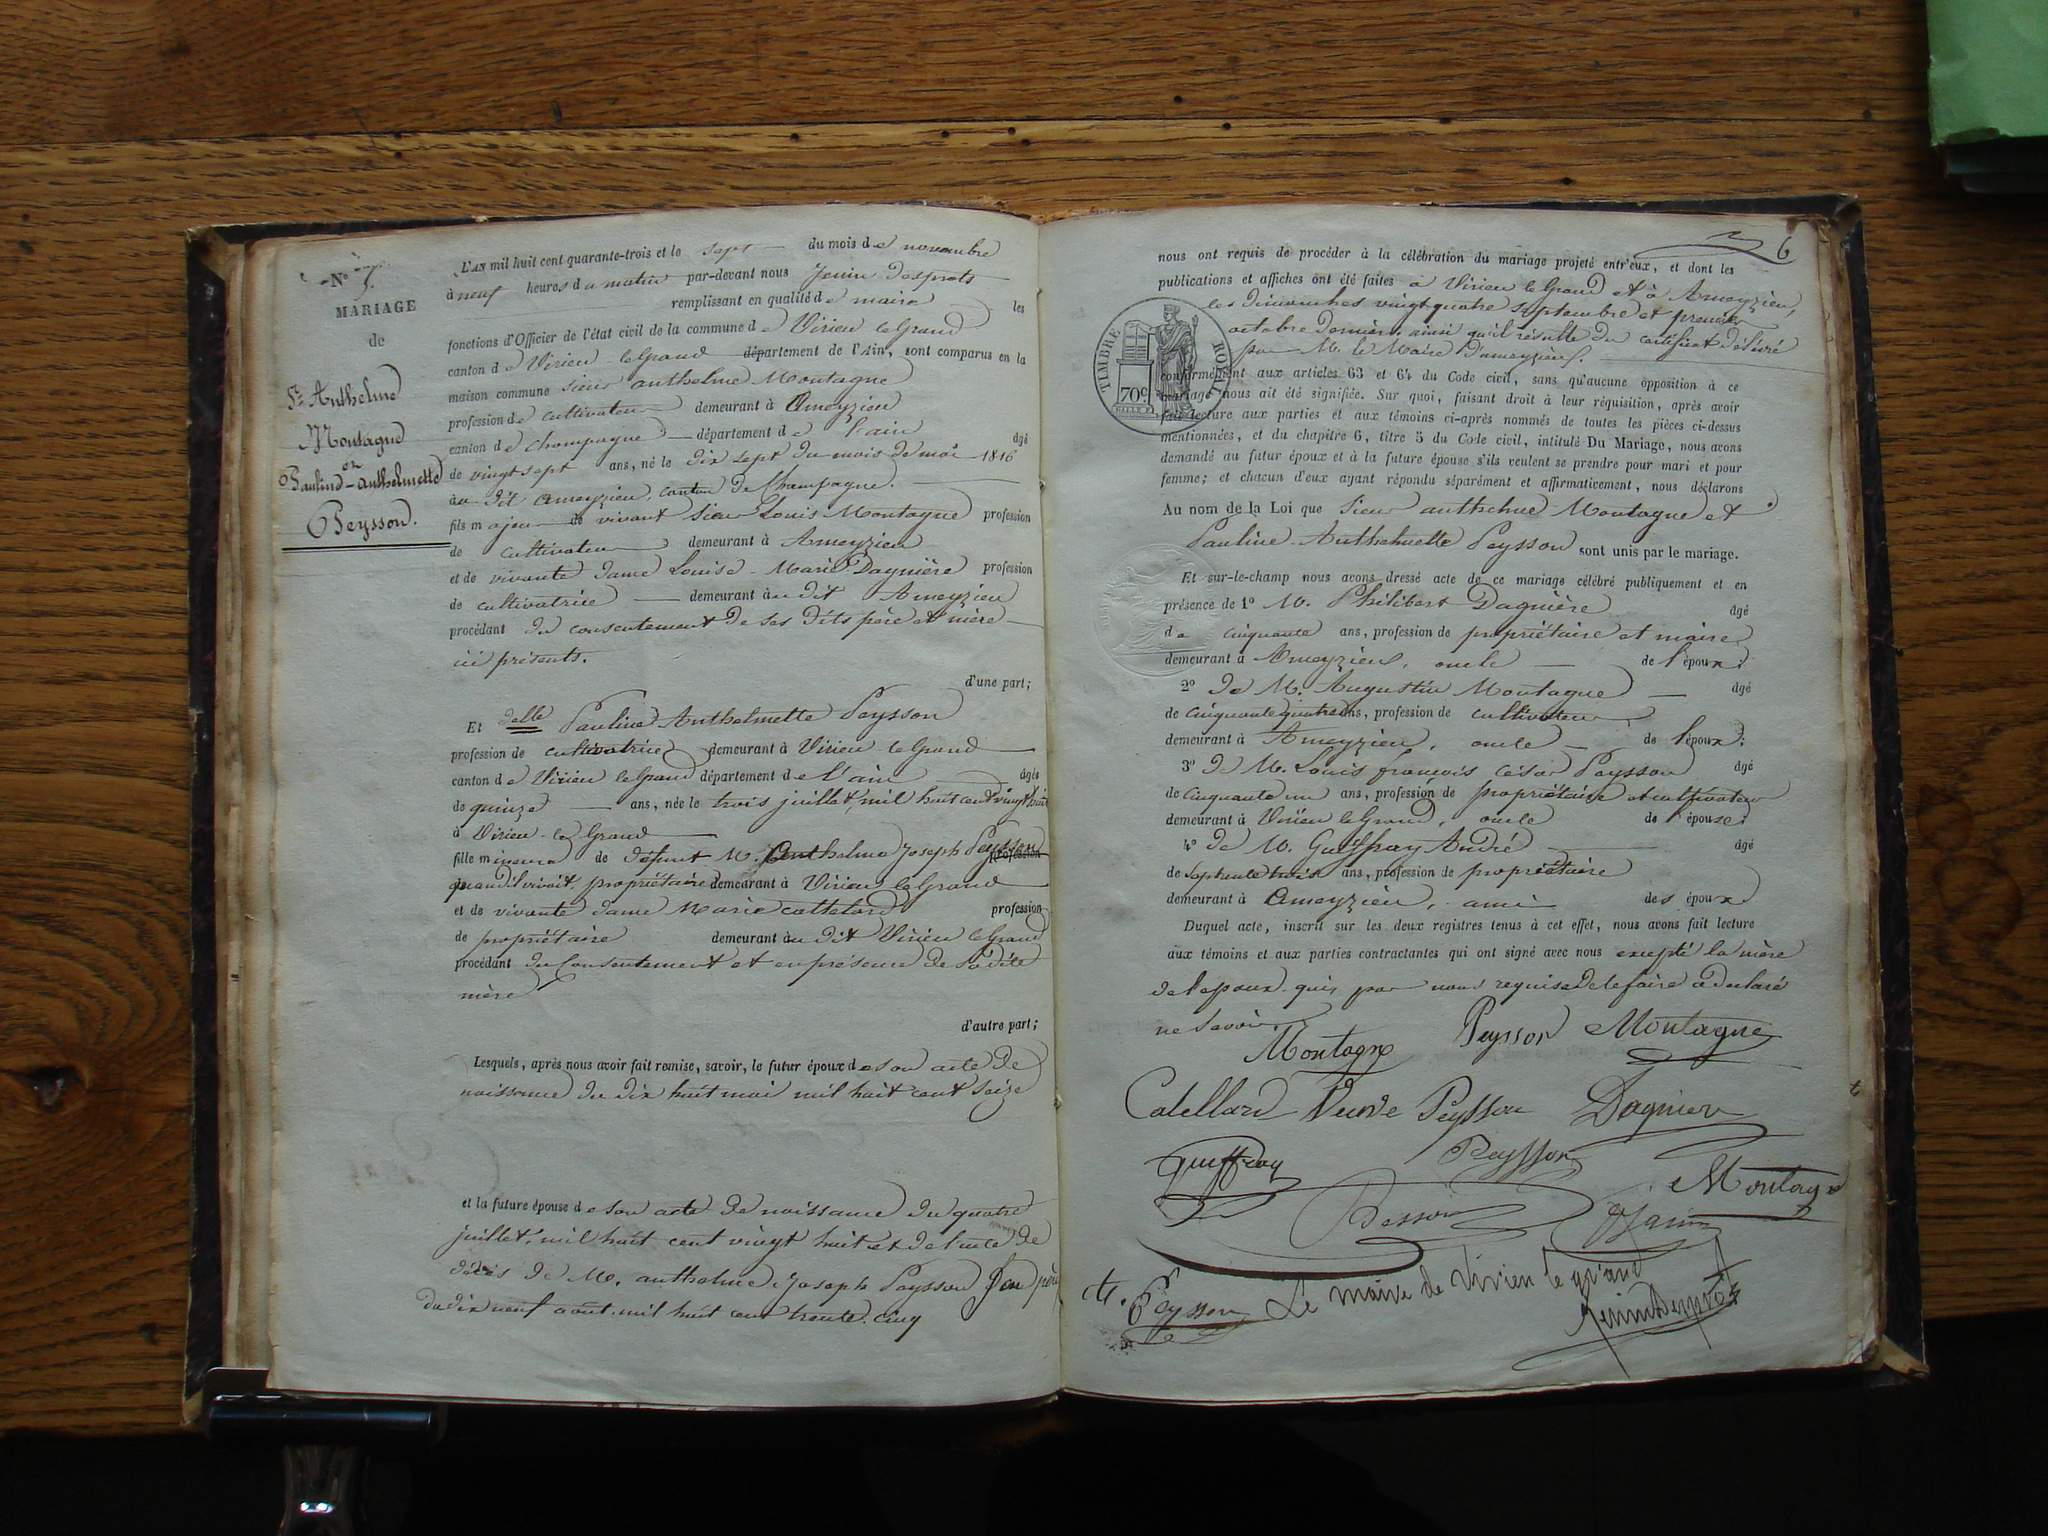 N° 5.
MARIAGE
de
Sr. Anthelme
Montagne
et
Pauline-Anthelmette
Peysson.
L'AN mil huit cent quarante-trois et le sept du mois de novembre
à neuf heures du matin par-devant nous Jenin Desprots
remplissant en qualité de maire les
fonctions d'Officier de l'état civil de la commune de Virieu le Grand
canton de Virieu le Grand département de l'Ain, sont comparus en la
maison commune sieur anthelme Montagne
profession de cultivateur demeurant à Ameyzieu
canton de Champagne département de l'ain âgé
de vingt sept ans, né le dix sept du mois de mai 1816
au dit Ameyzieu, canton de Champagne.
fils majeur de vivant sieur Louis Montagne profession
de cultivateur demeurant à Ameyzieu
et de vivante dame Louise-Marie Dagnière profession
de cultivatrice demeurant au dit Ameyzieu
procédant du consentement de ses dits père et mère
ici présents.
d'une part;
Et delle Pauline Anthelmette Peysson
profession de cultivatrice demeurant à Virieu le Grand
canton de Virieu le Grand département de l'ain âgée
de quinze ans, née le trois juillet, mil huit cent vingt huit
à Virieu-le Grand
fille mineure de défunt M. Anthelme Joseph Peysson profession
quand il vivait, propriétaire demeurant à Virieu le Grand
et de vivante dame Marie Cattelard profession
de propriétaire demeurant au dit Virieu le Grand
procédant du Consentement et en présence de sa dite
mère
d'autre part;
Lesquels, après nous avoir fait remise, savoir, le futur époux de son acte de
naissance du dix huit mai mil huit cent seize
et la future épouse de son acte de naissance du quatre
juillet, mil huit cent vingt huit et de l'acte de
décès de M. anthelme Joseph Peysson son père
du dix neuf aout mil huit cent trente cinq
6
nous ont requis de procéder à la célébration du mariage projeté entr'eux, et dont les
publications et affiches ont été faites à Virieu le Grand et à Ameyzieu,
les dimanches vingt quatre septembre et premier
octobre derniers ainsi qu'il résulte du certificat délivré
par M. le Maire d'ameyzieu.
TIMBRE ROYAL
70c
conformément aux articles 63 et 64 du Code civil, sans qu'aucune opposition à ce
mariage nous ait été signifiée. Sur quoi, faisant droit à leur réquisition, après avoir
fait lecture aux parties et aux témoins ci-après nommés de toutes les pièces ci-dessus
mentionnées, et du chapitre 6, titre 5 du Code civil, intitulé Du Mariage, nous avons
demandé au futur époux et à la future épouse s'ils veulent se prendre pour mari et pour
femme; et chacun d'eux ayant répondu séparément et affirmativement, nous déclarons
Au nom de la Loi que sieur anthelme Montagne et
Pauline-Anthelmette Peysson sont unis par le mariage.
Et sur-le-champ nous avons dressé acte de ce mariage célébré publiquement et en
présence de 1° M. Philibert Dagnière âgé
de cinquante ans, profession de propriétaire et maire
demeurant à Ameyzieu, oncle de l'époux;
2° de M. Augustin Montagne âgé
de cinquante quatre ans, profession de cultivateur,
demeurant à Ameyzieu, oncle de l'époux;
3° de M. Louis françois César Peysson âgé
de cinquante un ans, profession de propriétaire et cultivateur
demeurant à Virieu le Grand, oncle de l'épouse;
4° de M. Guiffray André âgé
de septante trois ans, profession de propriétaire
demeurant à Ameyzieu, ami des époux
Duquel acte, inscrit sur les deux registres tenus à cet effet, nous avons fait lecture
aux témoins et aux parties contractantes qui ont signé avec nous excepté la mère
de l'epoux qui, par nous requise de le faire a déclaré
ne savoir
Montagne Peysson Montagne
Catellard Veuve Peysson Dagniere
guiffray Peysson Montagne
Besson Janin
Peysson Le maire de Virieu le grand
Jenin Desprots